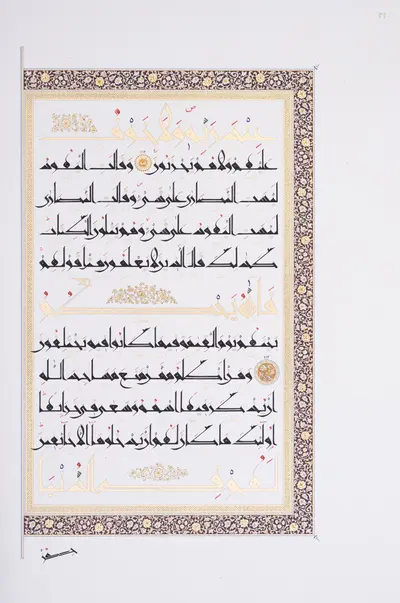 عند ربه ولا خوف
عليهم ولا هم يحزنون وقالت اليهود
ليست النصارى على شيء وقالت النصارى
ليست اليهود على شيء وهم يتلون الكتاب
كذلك قال الذين لا يعلمون مثل قولهم
فالله يحكم
بينهم يوم القيامة فيما كانوا فيه يختلفون
ومن أظلم ممن منع مساجد الله
أن يذكر فيها اسمه وسعى في خرابها
أولئك ما كان لهم أن يدخلوها إلا خائفين
لهم في الدنيا